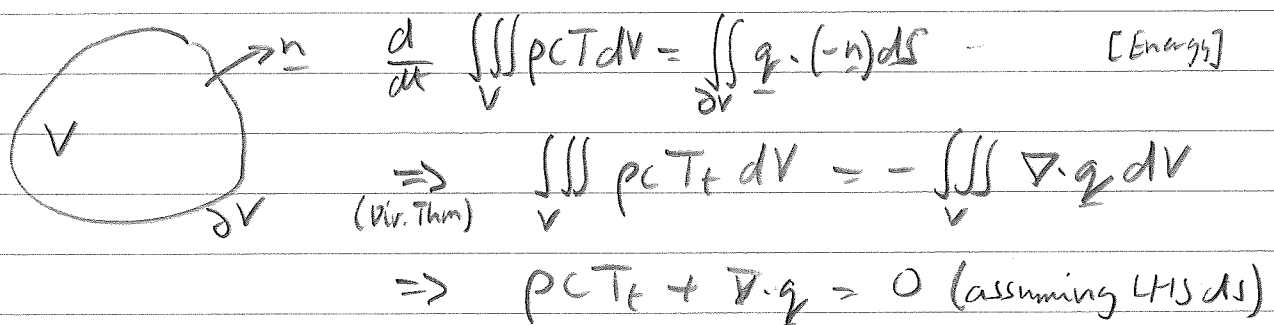 n d/dt ∭_V ρcTdV = ∬_∂V q·(-n)dS [Energy]
V ⇒ (Div. Thm) ∭_V ρcT_t dV = -∭_V ∇·q dV
∂V
⇒ ρcT_t + ∇·q = 0 (assuming LHS cts)